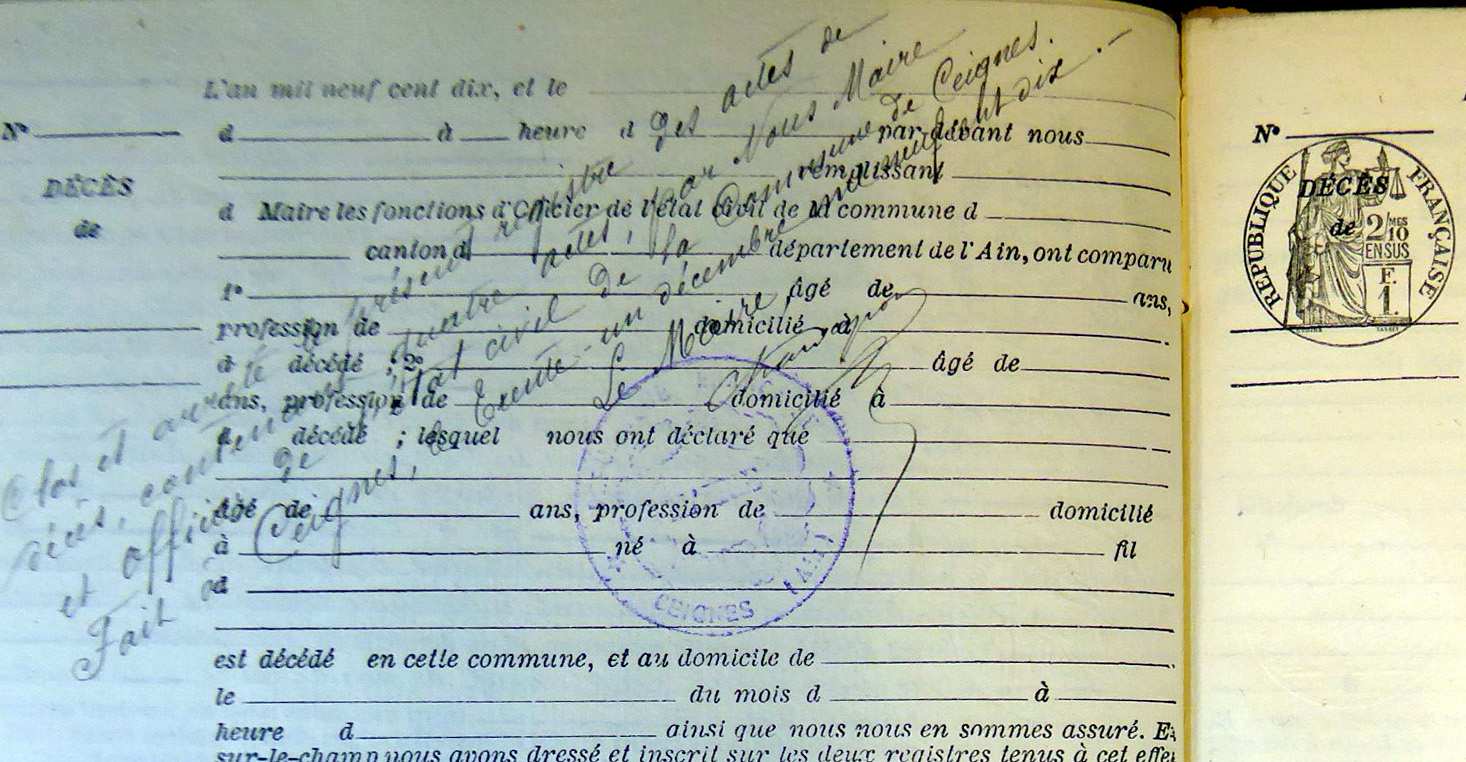 L'an mil neuf cent dix, et le
N°
d à heure d par devant nous
remplissant
DÉCÈS
de
d Maire les fonctions d'Officier de l'état civil de la commune d
canton d département de l'Ain, ont comparu
1° âgé de ans,
profession de domicilié à
d décédé ; 2° âgé de
ans, profession de domicilié à
d décédé ; lesquel nous ont déclaré que
âgé de ans, profession de domicilié
à né à fil
d
est décédé en cette commune, et au domicile de
le du mois d à
heure d ainsi que nous nous en sommes assuré. Et
sur-le-champ nous avons dressé et inscrit sur les deux registres tenus à cet effet
Clos et arrêté le présent registre des actes de
décès, contenant quatre actes, par Nous Maire
et officier de l'état civil de la Commune de Ceignes.
Fait à Ceignes, le trente-un décembre mil neuf cent dix.-
Le Maire,
CEIGNES (AIN)
N°
DÉCÈS
de
RÉPUBLIQUE FRANÇAISE
2/10 MES
EN SUS
F.
1.